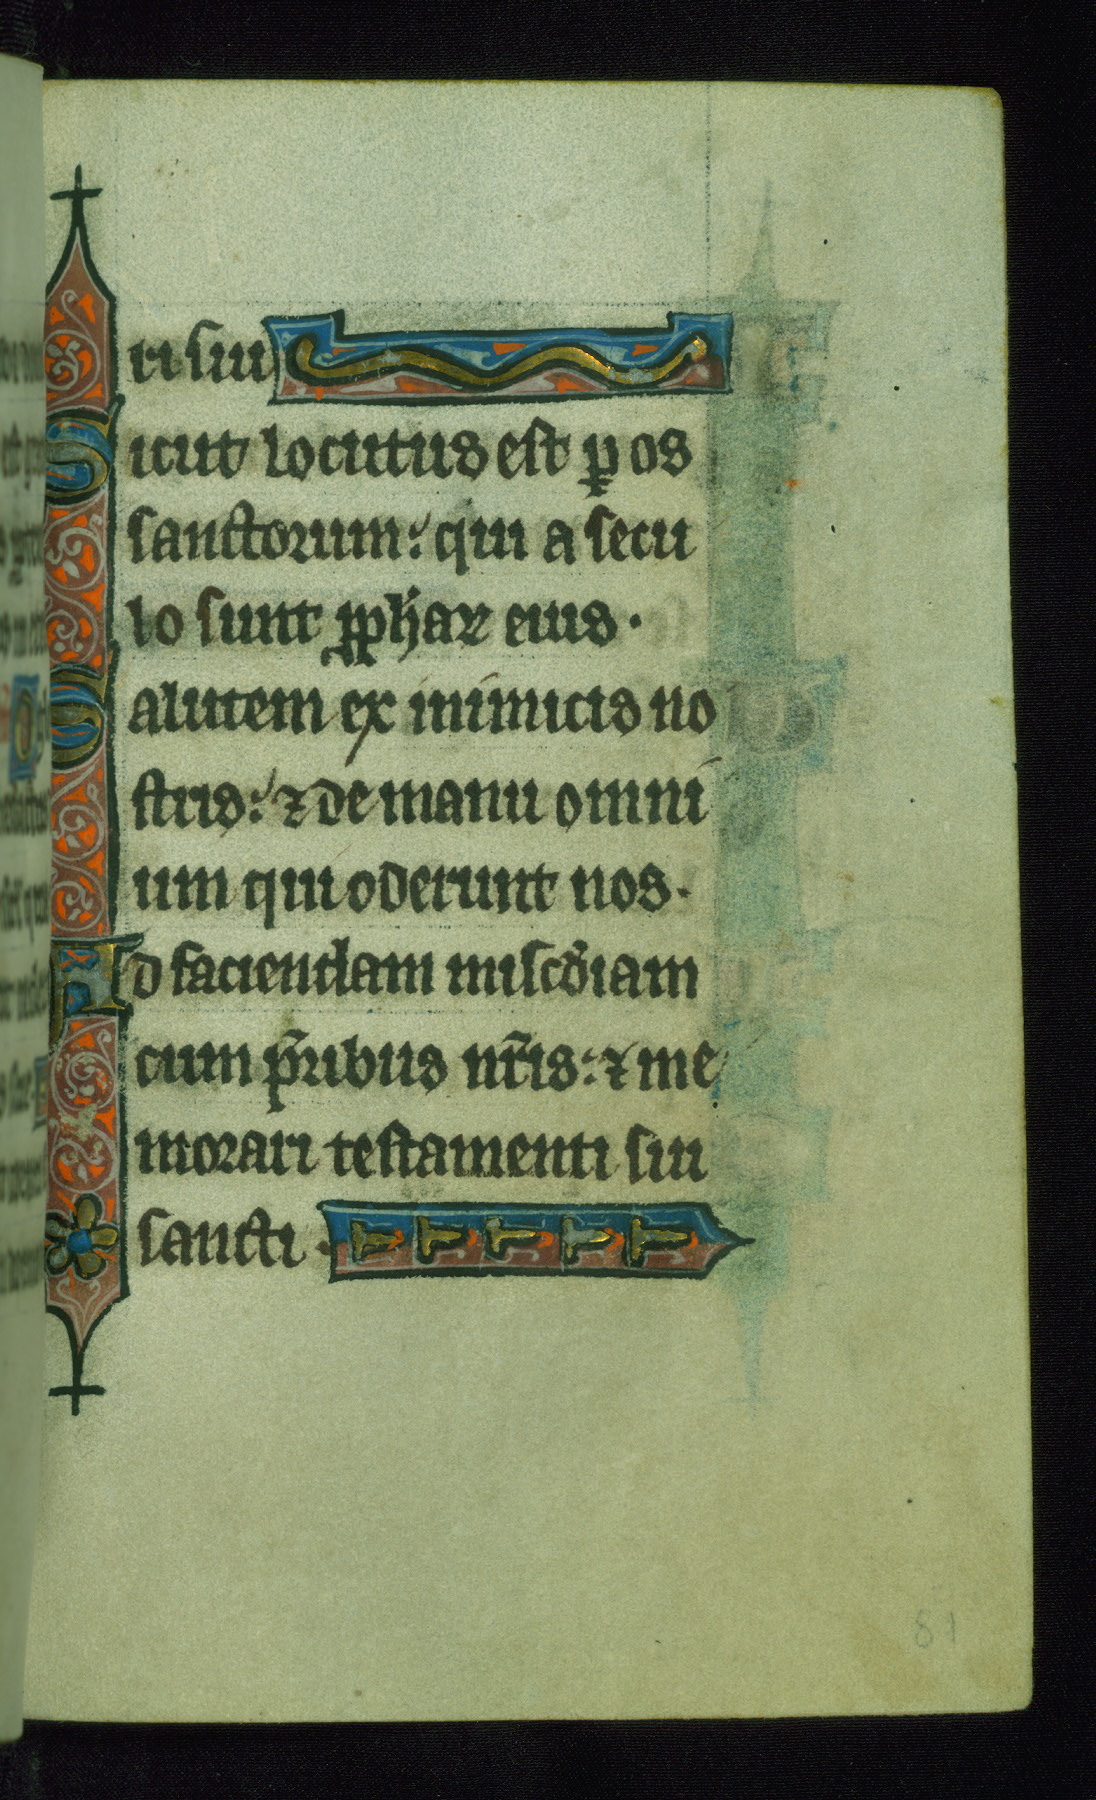 ri sui
Sicut locutus est ꝑ os
sanctorum: qui a secu
lo sunt ꝓph̄aꝝ eius ·
Salutem ex inimicis no
stris: ⁊ de manu omni
um qui oderunt nos ·
Ad faciendam misc̄diam
cum pr̄ibus nr̄is: ⁊ me
morari testamenti sui
sancti ·
81